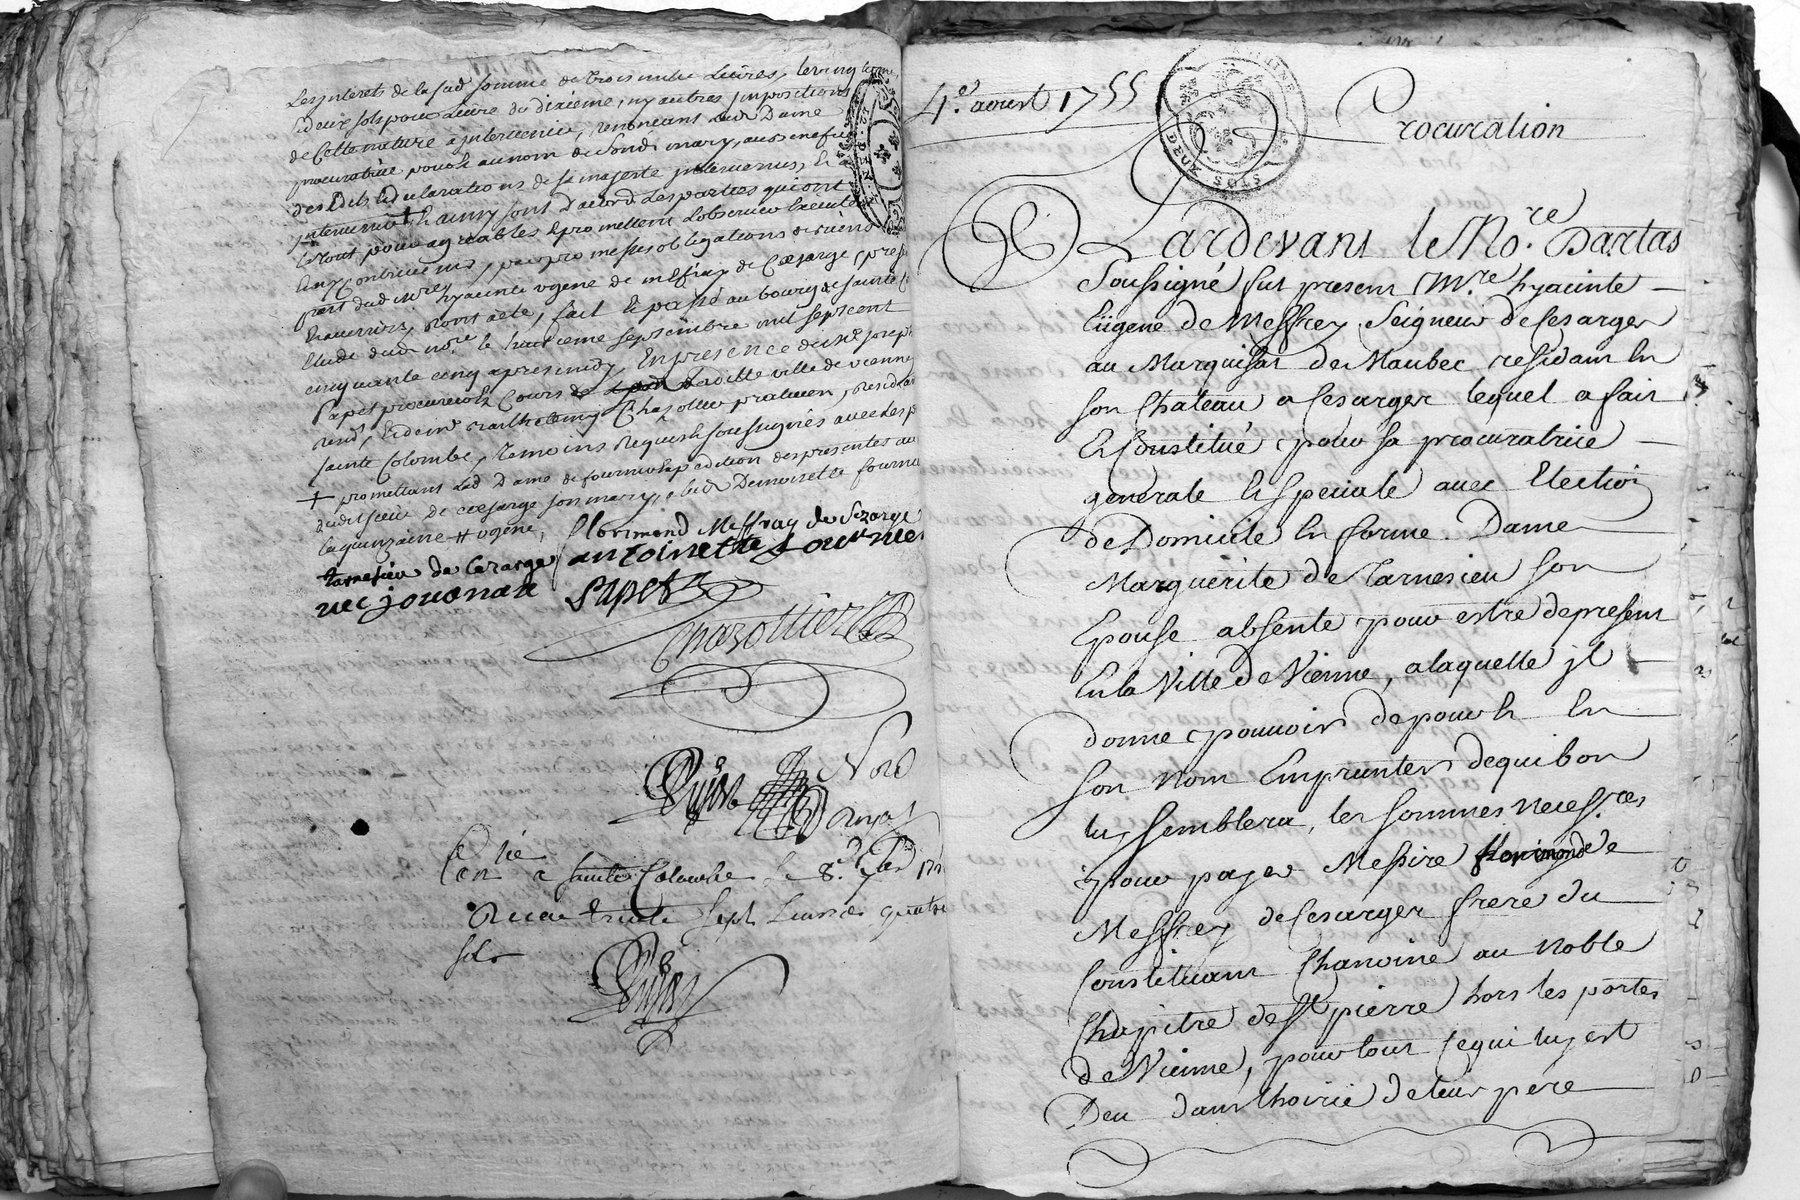 Les jnterets de la sud. somme de Trois mille Livres, le vingtieme
& deux sols pour Livre du dixieme, ny autres jmpositions
de Cette nature a jntervenir, renonceant lad. Dame
procuratrice pour & au nom de sond. mary, aux
des Edits & declarations de sa majesté jntervenus, &
jntervenir + & ainsy sont d'acord Les parties qui ont
le tout pour agreables & promettent L'observer Executer
par promesses obligations de biens
part dud. hyacinte Eugene de de Cezarge
acte, fait & passé au bourg de sainte
Etude dud. nore. le huitieme septembre mil sept cent
cinquante cinq apres midy, En presence de sr. joseph
Papet procureur & Cours de ladite ville de vienne
& de mr. Barthelemy Chazottier praticien, residant
sainte Colombe, Temoins Requis & soussignés avec Les
+ promettant Lad. Dame de fournir Expedition des presentes au
dudit sieur de Cesarge son mary, & lad. Demoiselle fournier
la quinzaine
florimond Meffray de Sezarge
tarnesieu de Cezarge antoinette fournier
nec jouanare papet
Chazottier
Nore
Royal
Con.lé a sainte Colombe le 8.e 7bre 175
Recu trente sept Livres quatre
sols
4.e aoust 1755
DEUX SOLS
Procuration
Pardevant le No.re Dartas
Soussigné fut present M.re hyacinte
Eugene de Meffrey Seigneur de Cesarges
au Marquisat de Maubec residant En
son Chateau a Cesarges lequel a fait
& Constitué pour sa procuratrice
generale & speciale avec Election
de Domicile En forme Dame
Marguerite de Tarnesieu son
Epouse absente pour estre de present
En la Ville de Vienne, a laquelle jl
donne pouvoir de pour & En
son nom Emprunter de qui bon
luy semblera, les sommes necess.res
pour payer Messire florimond de
Meffrey de Cesarges frere du
Constituant Chanoine au Noble
Chapitre de St pierre hors les portes
de Vienne, pour tout ce qui luy est
Deu dans l'hoirie de leur pere